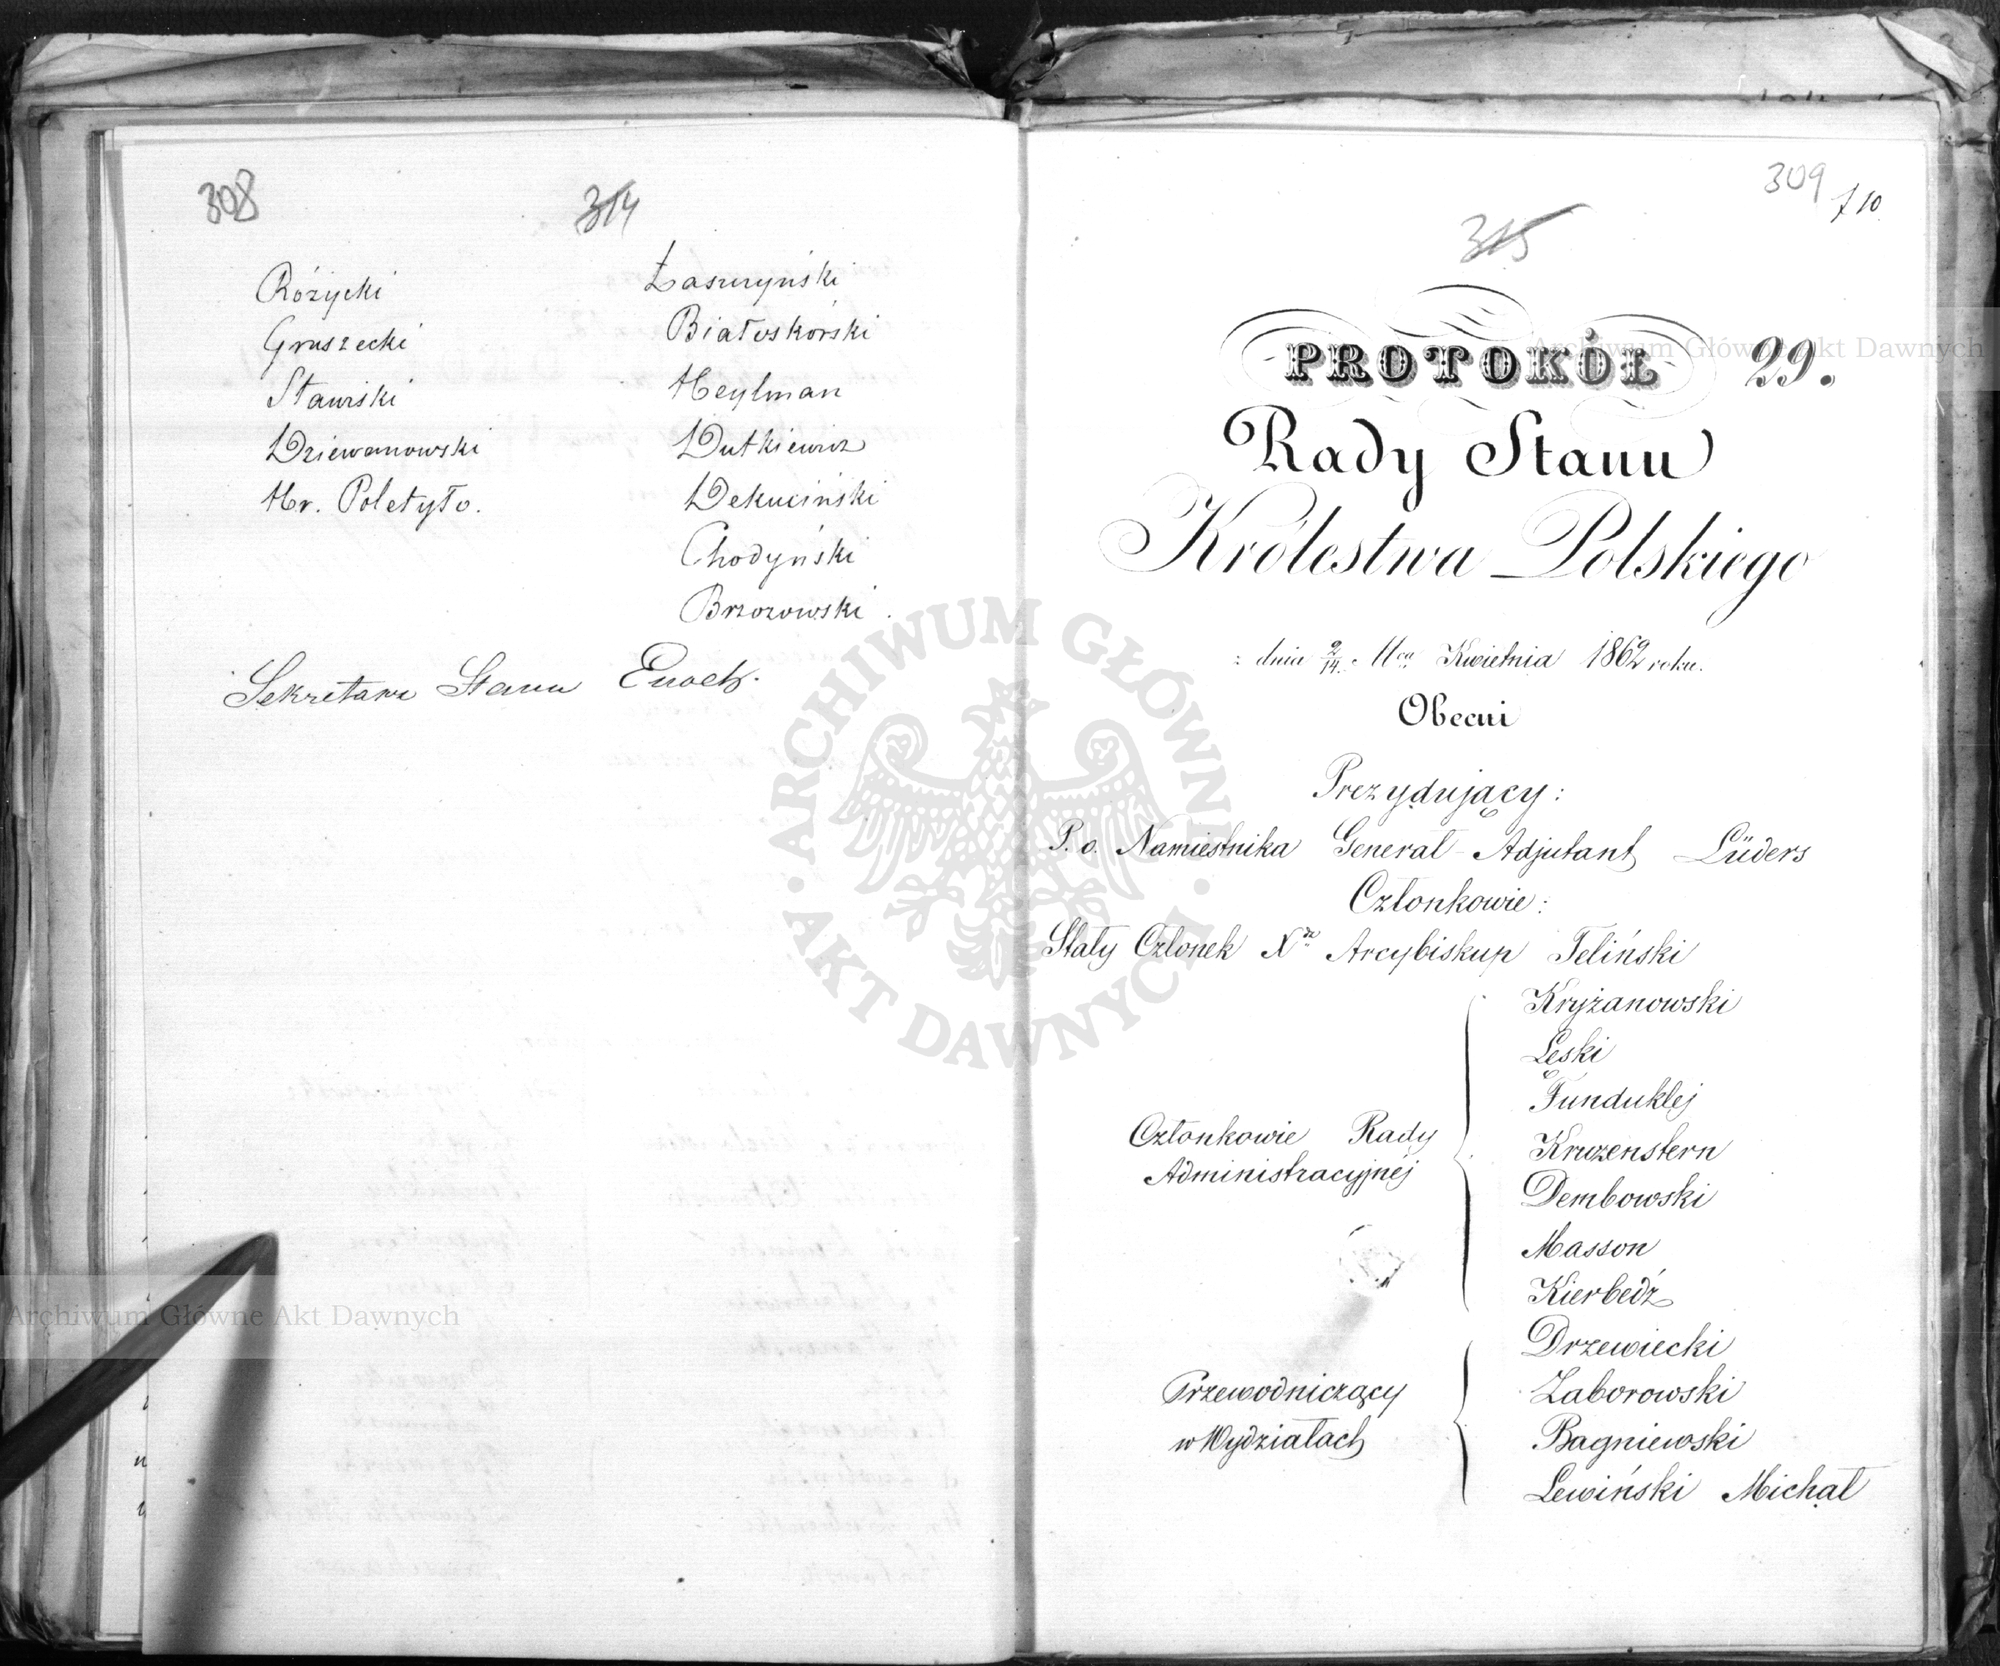 308
314
Różycki
Gruszecki
Stawiski
Dziewanowski
Hr. Poletyło.
Łaszczyński
Białoskórski
Heylman
Dutkiewicz
Dekuciński
Chodyński
Brzozowski.
Sekretarz Stanu Enoch.
309
710
315
PROTOKÓŁ 29.
Rady Stanu
Królestwa Polskiego
z dnia 2/14. Mca Kwietnia 1862 roku.
Obecni
Prezydujący:
P. o. Namiestnika Generał-Adjutant Lüders
Członkowie:
Stały Członek Xdz Arcybiskup Feliński
Członkowie Rady
Administracyjnéj
Kryżanowski
Łęski
Funduklej
Kruzenstern
Dembowski
Masson
Kierbedź
Przewodniczący
w Wydziałach
Drzewiecki
Zaborowski
Bagniewski
Lewiński Michał
Archiwum Główne Akt Dawnych
ARCHIWUM GŁÓWNE · AKT DAWNYCH ·
Archiwum Główne Akt Dawnych